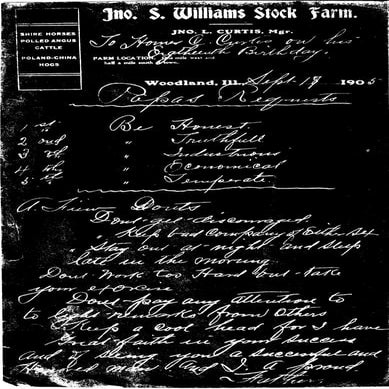 Jno. S. Williams Stock Farm.
JNO. L. CURTIS, Mgr.
SHIRE HORSES
POLLED ANGUS
CATTLE
POLAND-CHINA
HOGS
To Homer C. Curtis on his
Eighteenth Birthday
FARM LOCATION: mile west and
half a mile south of town.
Woodland, Ill. Sept 18 1905
Papas Requests
1 st Be Honest.
2 ond " Truthfull
3 th " Industrious
4 th " Economical
5 th " Temperate.
A Few Donts
Dont get discouraged.
Keep bad company of Either Sex
" Stay out at night and sleep
late in the morning
Dont Work too Hard but take
your exercise
Dont pay any attention to
remarks from Others
Keep a cool head for I have
great faith in your success
and
Honored man And I a proud